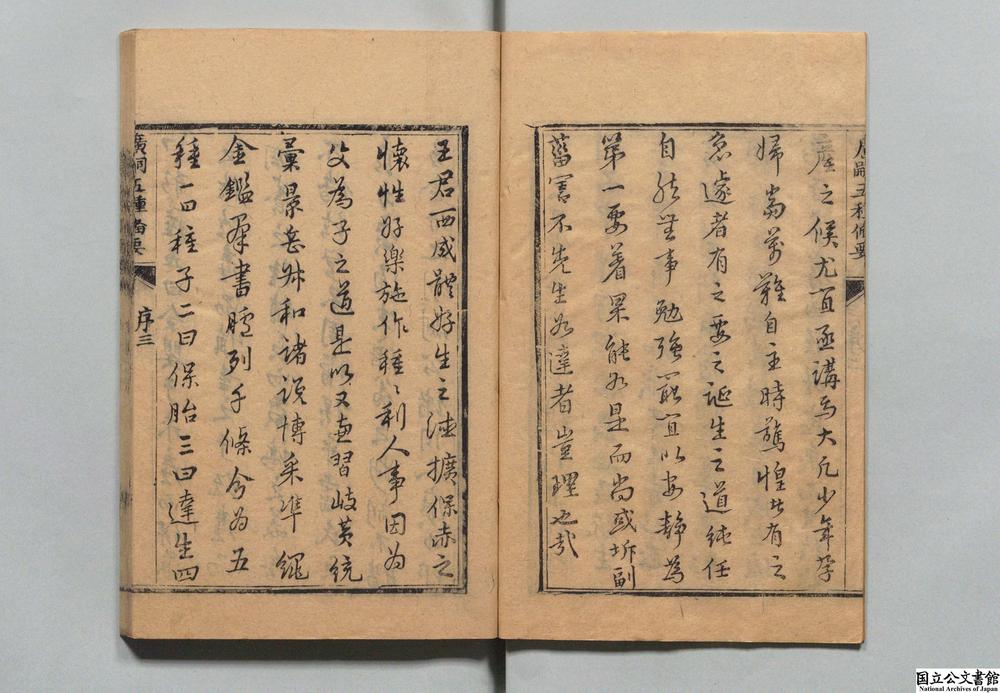 廣嗣五種備要
產之候尤宜亟講焉大凡少年孕
婦當萬難自主時驚惶者有之
急遽者有之要之誕生之道純任
自然無事勉強最宜以安靜為
第一要着果能如是而尚或坼副
菑害不先生如達者豈理也哉
王君西成體好生之德擴保赤之
懷性好樂施作種〻利人事因為
父為子之道是以又兼習岐黃統
彙景岳叔和諸說博采準繩
金鑑羣書臚列千條分為五
種一曰種子二曰保胎三曰達生四
廣嗣五種備要
序三
国立公文書館
National Archives of Japan